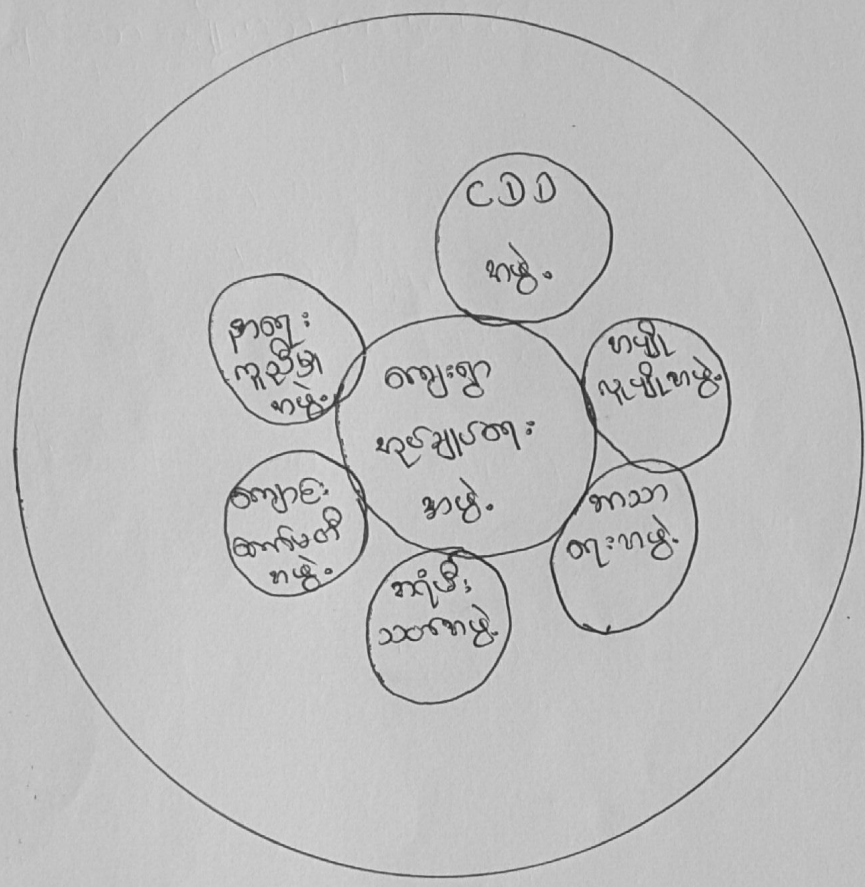 CDD
အဖွဲ့
နာရေး
ကူညီမှု
အဖွဲ့
ကျေးရွာ
အုပ်ချုပ်ရေး
အဖွဲ့
အပျို
လူပျိုအဖွဲ့
ကျောင်း
ကော်မတီ
အဖွဲ့
ဘာသာ
ရေးအဖွဲ့
အရံမီး
သတ်အဖွဲ့